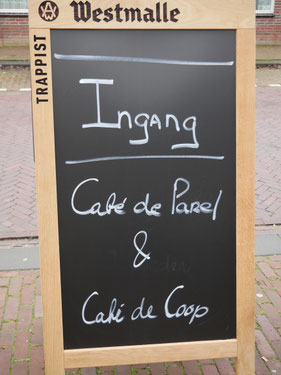 Westmalle
TRAPPIST
Ingang
Café de Parel
&
Café de Coop